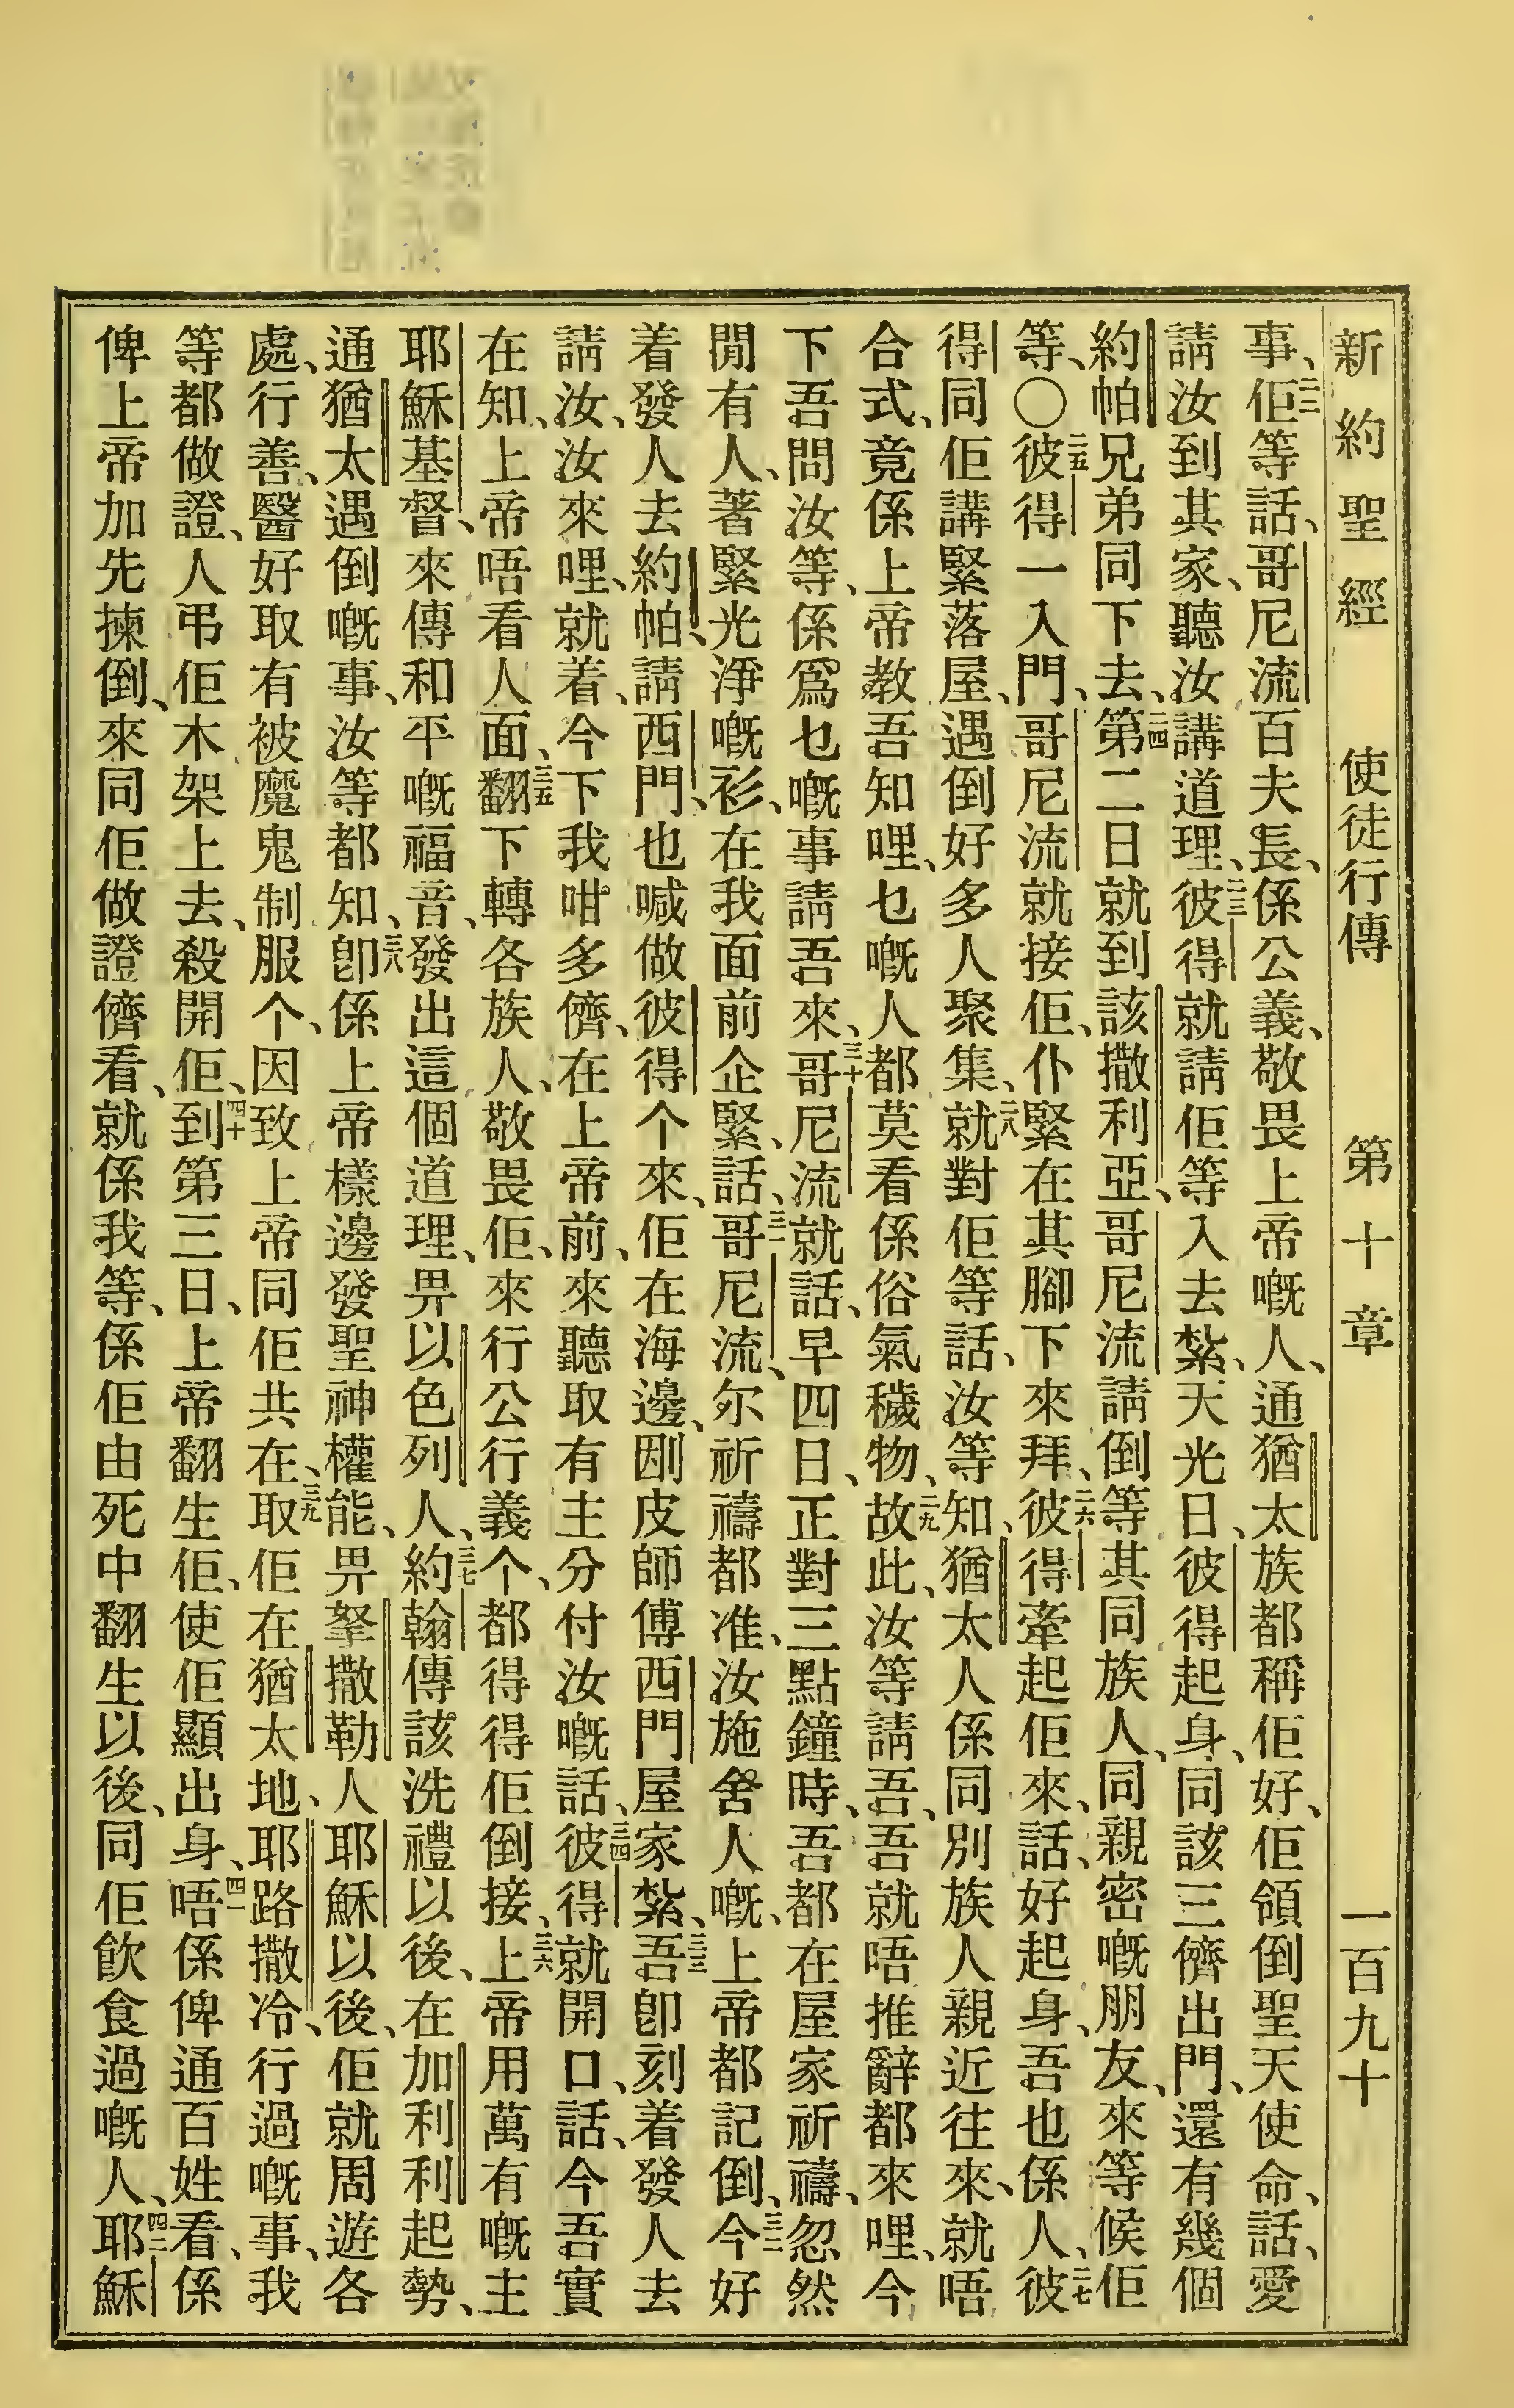 新約聖經 使徒行傳 第十章 一百九十
事、二二佢等話、哥尼流百夫長、係公義、敬畏上帝嘅人、通猶太族都稱佢好、佢領倒聖天使命、話、愛
請汝到其家、聽汝講道理、二三彼得就請佢等入去紮、天光日、彼得起身、同該三儕出門、還有幾個
約帕兄弟同下去、二四第二日就到該撒利亞、哥尼流請倒等其同族人、同親密嘅朋友、來等候佢
等、〇二五彼得一入門、哥尼流就接佢、仆緊在其腳下來拜、二六彼得牽起佢來、話、好起身、吾也係人、二七彼
得同佢講緊落屋、遇倒好多人聚集、二八就對佢等話、汝等知、猶太人係同別族人親近往來、就唔
合式、竟係上帝教吾知哩、乜嘅人都莫看係俗氣穢物、二九故此、汝等請吾、吾就唔推辭都來哩、今
下吾問汝等、係爲乜嘅事請吾來、三十哥尼流就話、早四日、正對三點鐘時、吾都在屋家祈禱、忽然
閒有人、著緊光淨嘅衫、在我面前企緊、話、三一哥尼流、尔祈禱都准、汝施舍人嘅、上帝都記倒、三二今好
着發人去約帕、請西門、也喊做彼得个來、佢在海邊、剛皮師傅西門屋家紮、三三吾卽刻着發人去
請汝、汝來哩、就着、今下我咁多儕、在上帝前、來聽取有主分付汝嘅話、三四彼得就開口、話、今吾實
在知、上帝唔看人面、三五翻下轉各族人、敬畏佢、來行公行義个、都得得佢倒接、三六上帝用萬有嘅主
耶穌基督、來傳和平嘅福音、發出這個道理、畀以色列人、三七約翰傳該洗禮以後、在加利利起勢、
通猶太遇倒嘅事、汝等都知、三八卽係上帝樣邊發聖神權能、畀拏撒勒人耶穌以後、佢就周遊各
處、行善、醫好取有被魔鬼制服个、因致上帝同佢共在、三九取佢在猶太地、耶路撒冷、行過嘅事、我
等都做證、人弔佢木架上去、殺開佢、四十到第三日、上帝翻生佢、使佢顯出身、四一唔係俾通百姓看、係
俾上帝加先揀倒、來同佢做證儕看、就係我等、係佢由死中翻生以後、同佢飲食過嘅人、四二耶穌